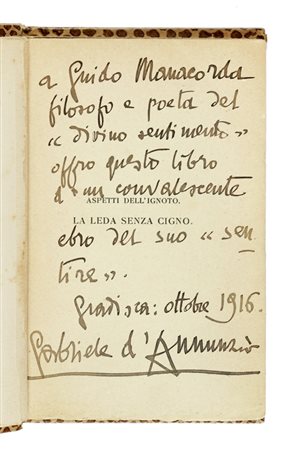 a Guido Manacorda
filosofo e poeta del
« divino sentimento»
offro questo libro
d'un convalescente
ASPETTI DELL'IGNOTO.
LA LEDA SENZA CIGNO.
ebro del suo « sen
tire ».
Gradisca: ottobre 1916.
Gabriele d'Annunzio